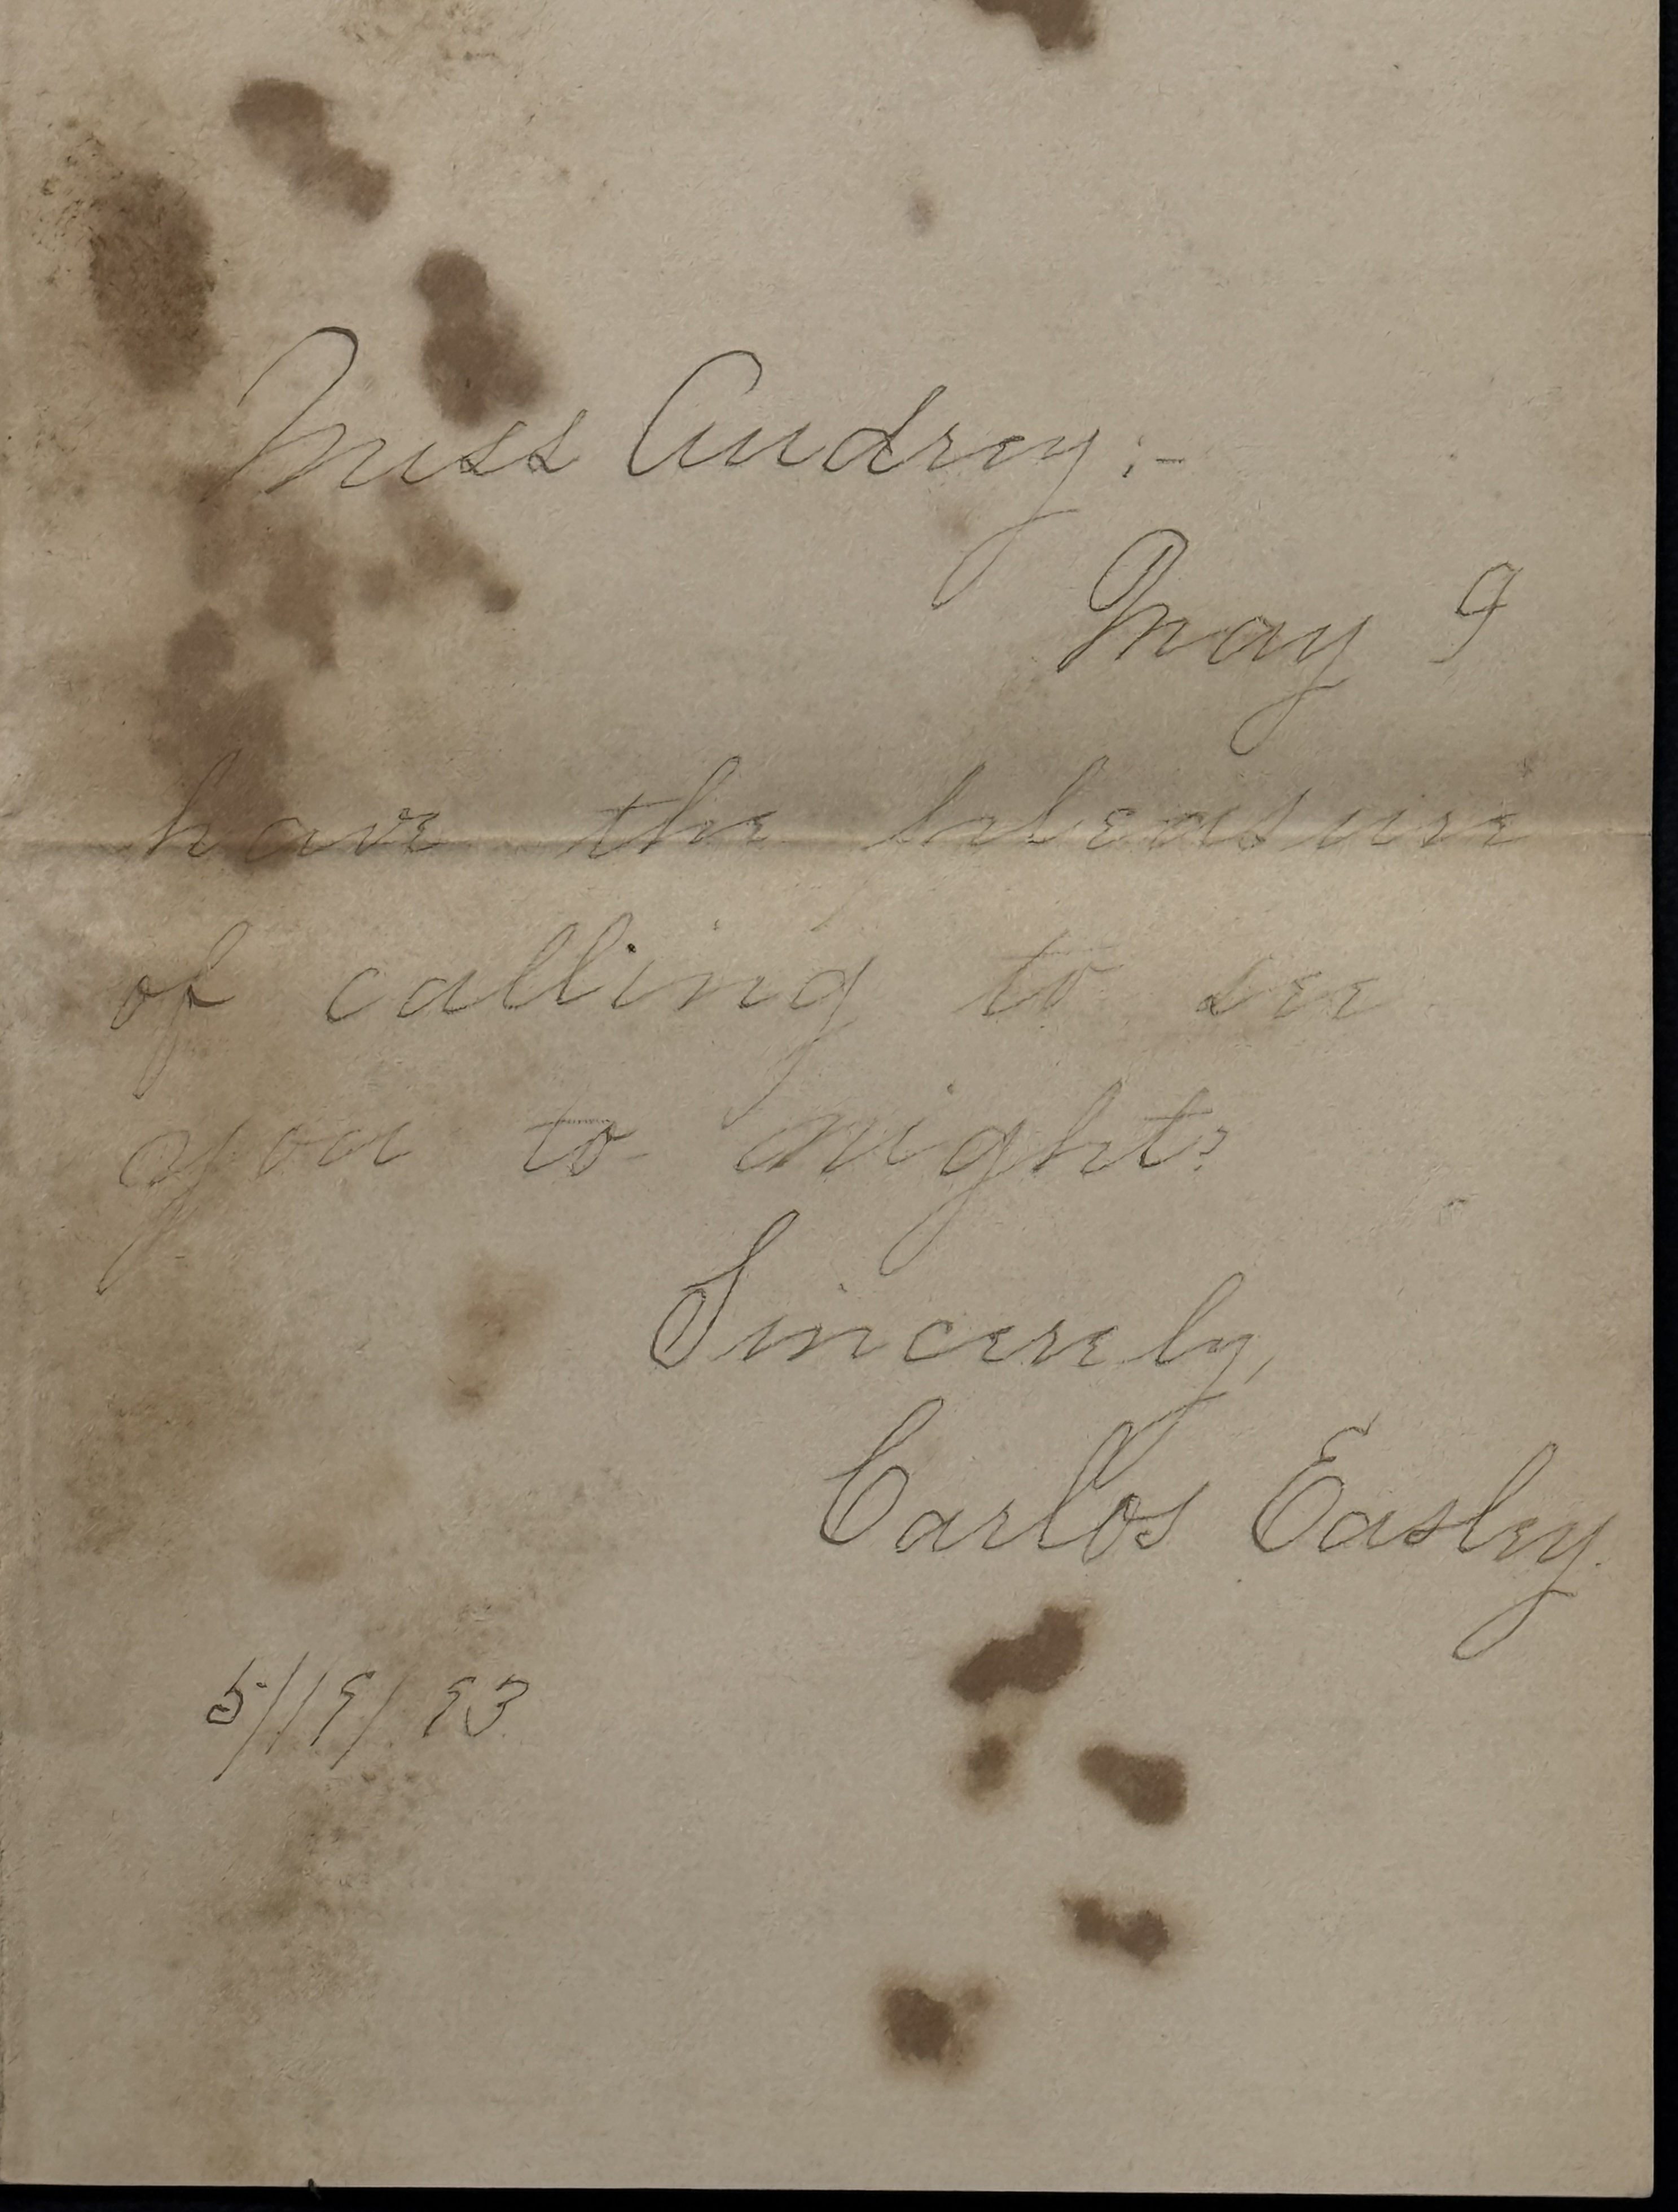 Miss Audrey:-
May I
have the pleasure
of calling to see
you to-night?
Sincerely,
Carlos Easley.
5/19/93